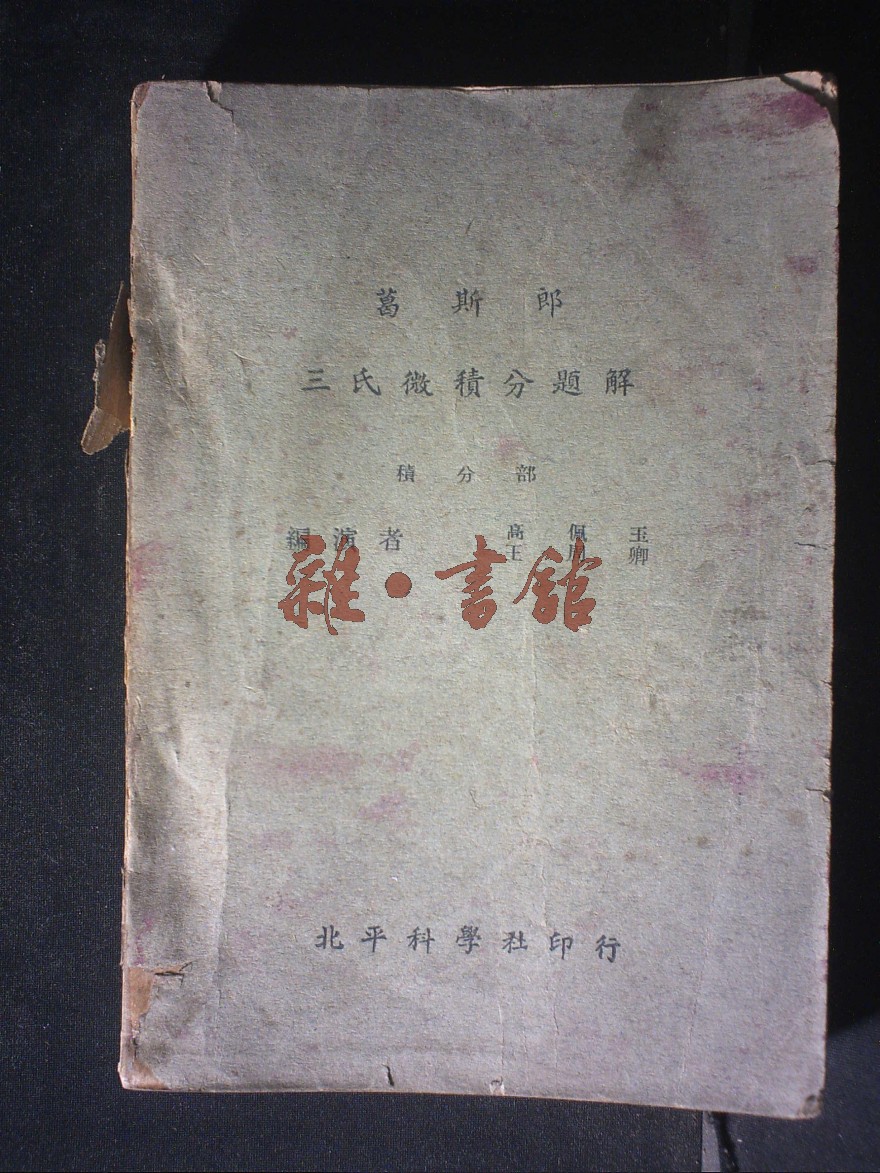 葛斯郎
三氏微積分題解
積分部
編演者 高佩玉
王周卿
雜·書館
北平科學社印行